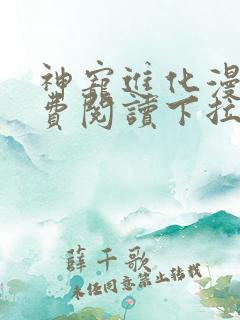 神寵進化漫
費閱讀下拉
薛千歌
未经同意禁止转载